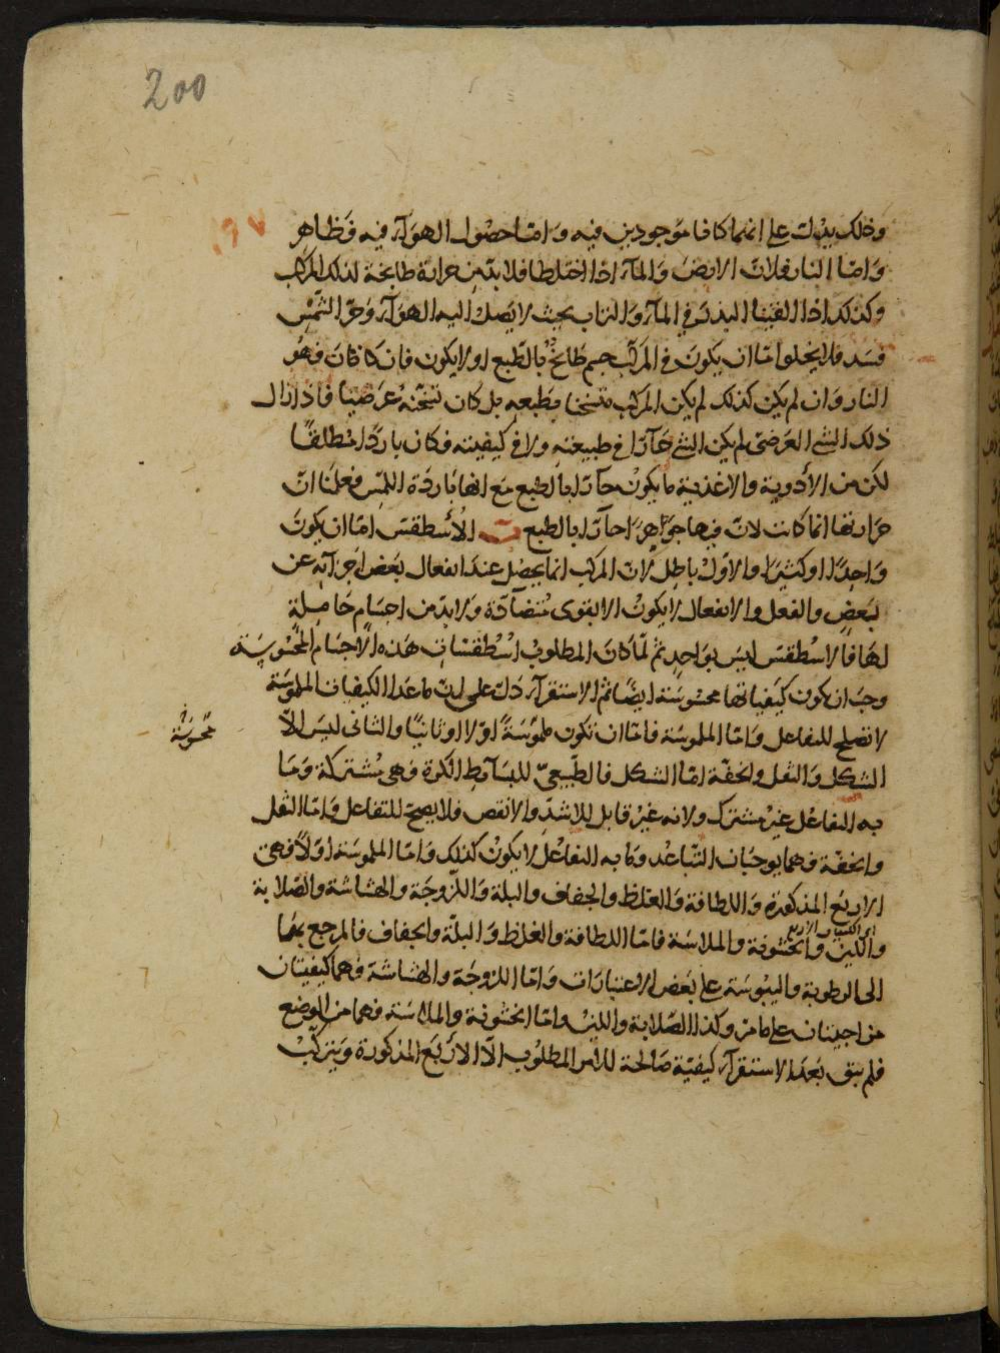 200
١٩٧
وذلك يدل على انهما كانا موجودين فيه وَامّا حصُول الهوَآء فيه فظاهر
وَامّا النار فلانّ الارضَ وَالمآء اذا اختلطا فلا بدّ من حرارة طابخة لذلك المركّب
وكذلك اذا القينا البذر في المآء وَالتراب بحيث لا يَصل اليه الهوَآء وَحَرّ الشَّمْس
فسَد فلا يخلوا امّا ان يكونَ في المركّب جسم طابخ بالطّبع او لا يكون فان كان فهُو
النار وَان لم يكن كذلك لم يكن المركّب متسخنا بطَبعه بل كان تسخّنهُ عَرَضيّا فاذا زال
ذلك الشي العَرَضيّ لم يكن الشي حَآرّا في طبيعته ولا في كيفيته فكان باردًا مُطلقًا
لكن من الأدوية والاغذية ما يكونُ حآرّا بالطبع مع انها بَاردَة اللّمس فعلمنَا انّ
حرارتها انما كانت لانّ فيها جَوْاهِرًا حآرّا بالطبع الأُسطقسّ امّا ان يكونَ
وَاحِدًا او كثيرًا والاوّل باطِل لانّ المركّب انما يحصل عندَ انفعال بَعْض اجزآئه عن
بَعضٍ والفعل والانفعال لا يكونُ الا بقوى مُتضآدّة وَلا بدّ من اجسَام حَامِلة
لهَا فالاسْطقسّ ليسَ بوَاحدٍ ثم لمّا كانَ المطلوبُ اسْطقسّات هَذه الاجسَام المحْسُوسَة
وجبَ ان يكون كيفياتها محسُوسَة ايضًا ثم الاستقرآء دَلّ على انّ ما عَدا الكيفيات الملموسَة
لا تصلح للتفاعل وَامّا الملموسَة فامّا ان تكون ملموُسَةً اوّلا او ثانيًا والثاني ليسَ الاّ
محسُوسَة
الشكل وَالثقل والخفّة امّا الشكل فالطّبيعيّ للبسَآئط الكرة وَهي مُشتركة وَما
به التفاعُل غيرُ مشترك ولانه غيرُ قابل للاشدّ والانقص فلا يصحّ للتفاعل وَامّا الثقل
والخفّة فهما يوجبَان التّباعُد وَما به التفاعُل لا يكونُ كذلك وَامّا الملموسَة اوّلاً فهي
الاربَع المذكورة وَاللطافة وَالغلظ والجفاف والبلة وَاللّزوجَة والهشاشة والصّلابة
واللّين والخشونة والملاسَة فامّا اللطافة والغلظ وَالبلّة والجفاف فالمرجع بهَا
الى الرطوبة واليبُوسَة على بَعْض الاعتبارات وَامّا اللزوجَة والهشاشة فهما كيفيتان
مزاجيتان على ما مرّ وكذا الصّلابة وَاللينُ وَامّا الخشونة والملاسَة فهما من الوضع
فلم يبق بَعدَ الاستقرآء كيفيّة صَالحة للامر المطلوُب الاّ الاربَع المذكورة وَيتركّبُ